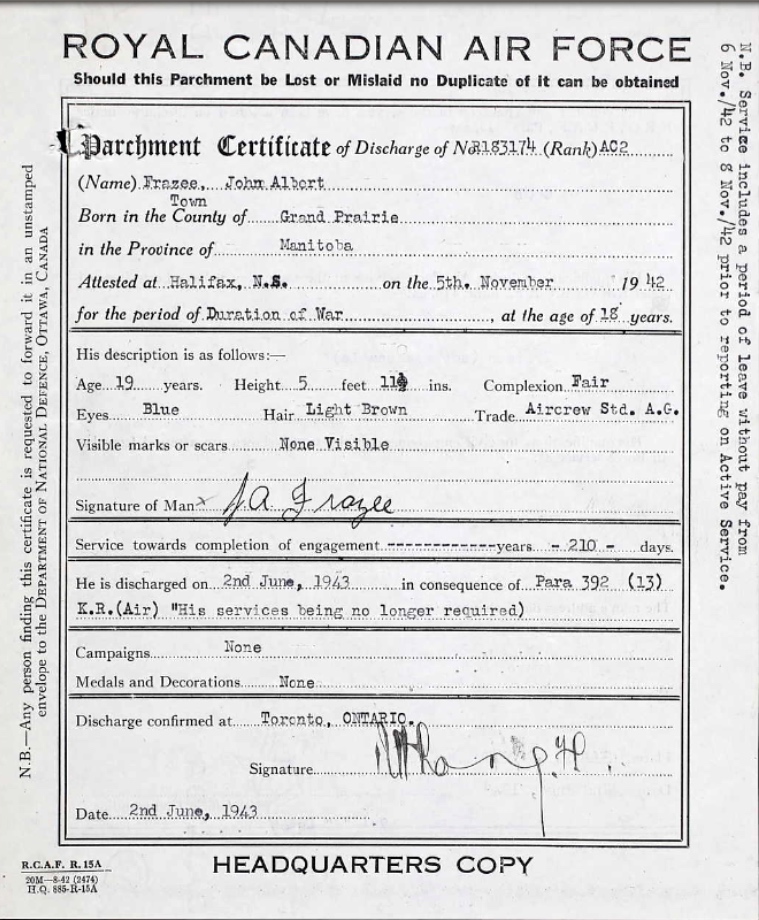 ROYAL CANADIAN AIR FORCE
Should this Parchment be Lost or Mislaid no Duplicate of it can be obtained
Parchment Certificate of Discharge of No R183174 (Rank) AC2
(Name) Frazee, John Albert
Town
Born in the County of Grand Prairie
in the Province of Manitoba
Attested at Halifax, N.S. on the 5th. November 1942
for the period of Duration of War, at the age of 18 years.
His description is as follows:—
Age 19 years. Height 5 feet 11 ins. Complexion Fair
Eyes Blue Hair Light Brown Trade Aircrew Std. A.G.
Visible marks or scars None Visible
Signature of Man x J.A. Frazee
Service towards completion of engagement ------------years - 210 - days.
He is discharged on 2nd June, 1943 in consequence of Para 392 (13)
K.R.(Air) "His services being no longer required)
Campaigns None
Medals and Decorations None
Discharge confirmed at Toronto, ONTARIO.
Signature
Date 2nd June, 1943
R.C.A.F. R.15A
20M—8-42 (2474)
H.Q. 885-R-15A
HEADQUARTERS COPY
N.B.—Any person finding this certificate is requested to forward it in an unstamped
envelope to the DEPARTMENT OF NATIONAL DEFENCE, OTTAWA, CANADA
N.B. Service includes a period of leave without pay from
6 Nov./42 to 8 Nov./42 prior to reporting on Active Service.